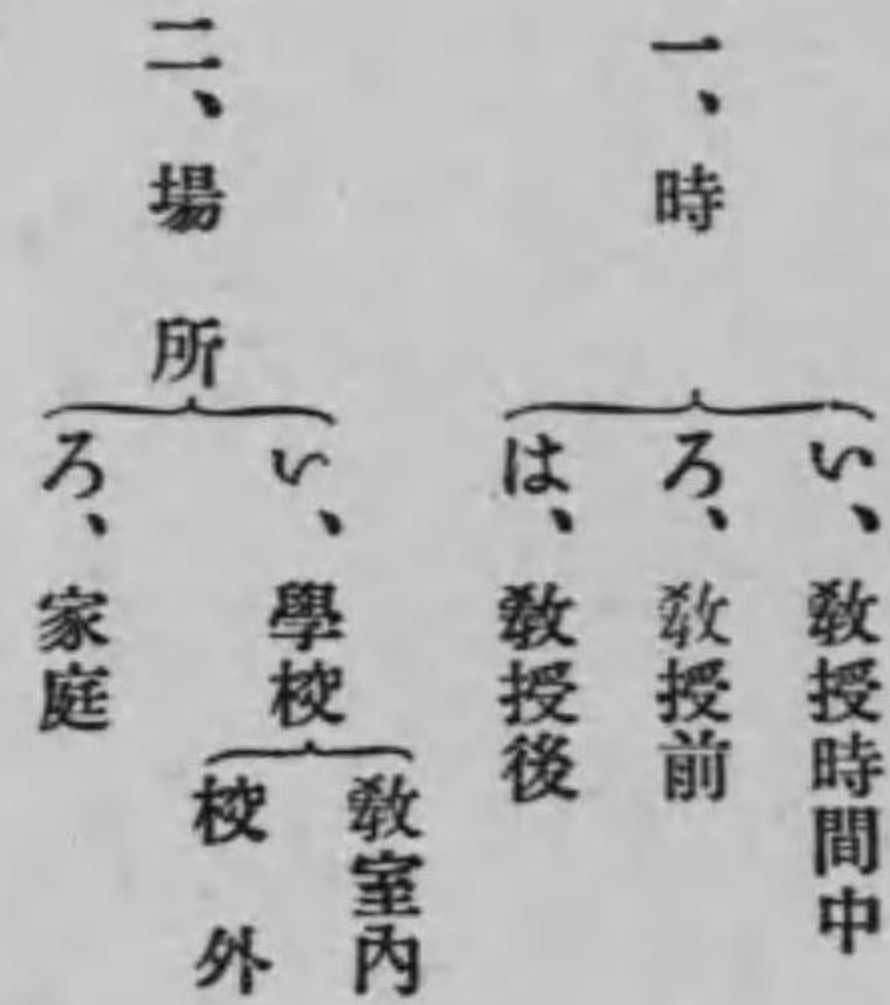 一、時
い、敎授時間中
ろ、敎授前
は、敎授後
二、場所
い、學校
敎室內
校外
ろ、家庭